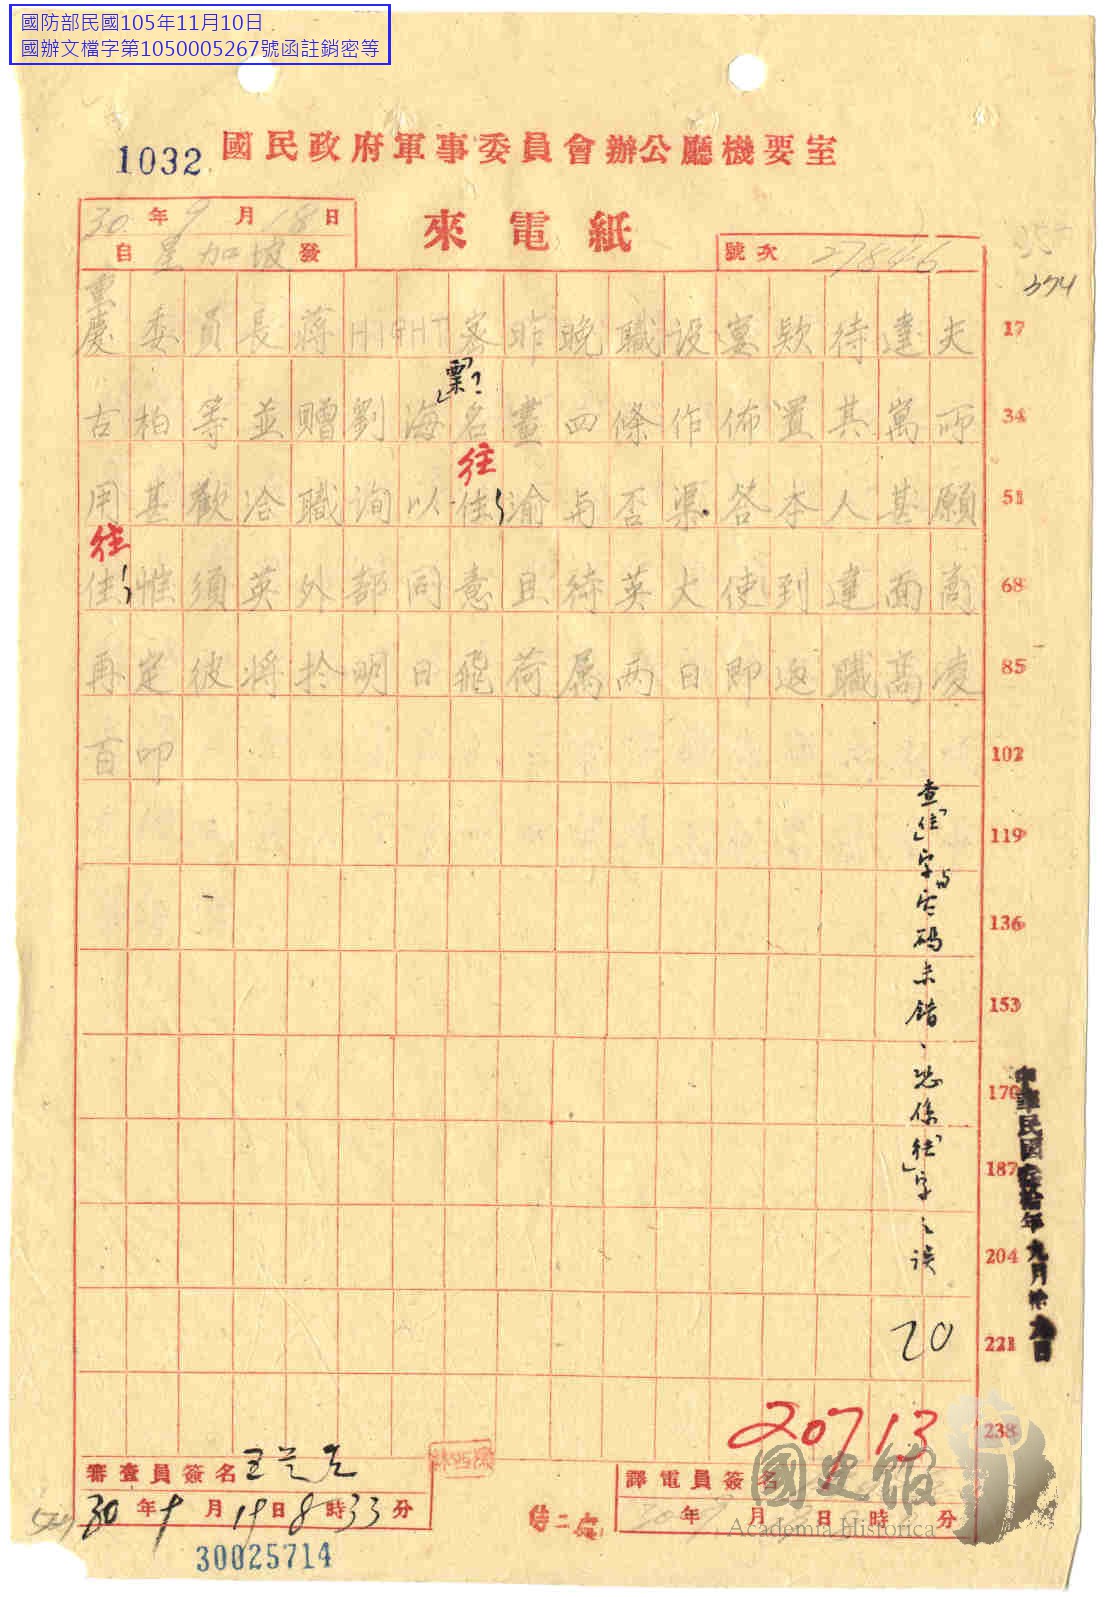 國防部民國105年11月10日
國辦文檔字第1050005267號函註銷密等
1032
國民政府軍事委員會辦公廳機要室
來電紙
30年9月18日
自星加坡發
號次 27846
374
重
慶委員長蔣HIGHT密昨晚職設宴欵待達夫 17
「票」?
古柏等並贈劉海名畫四條作佈置其萬
34
往
用甚歡洽職詢以佳渝與否渠答本人甚願 51
往
佳惟須英外部同意且待英大使到達面商 68
再定彼將於明日飛荷属两日即返職高凌 85
百叩 102
119
136
153
170
187
204
221
238
查「佳」字與密碼未錯、恐係「往」字之误
20
20713
中華民國年九月日
審查員簽名
30年9月19日8時33分
譯電員簽名
年 日 時 分
侍二處
國史館
Academia Historica
30025714